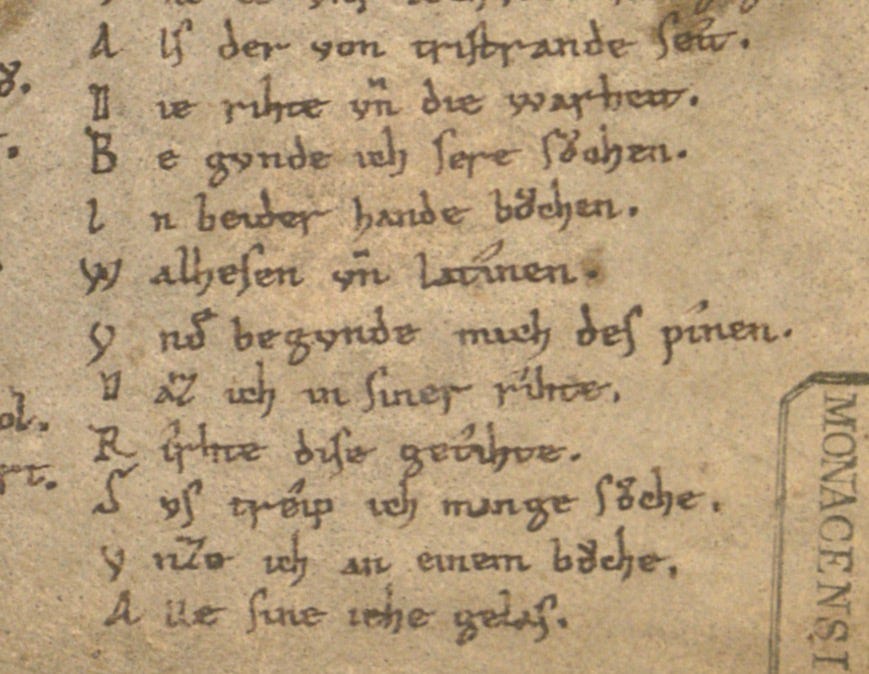 A lſ der von triſtrande ſeit.
D ie rihte vn̄ die warheit.
B e gvnde ich ſere ſv̊chen.
I n beider hande bv̊chen.
W alheſen vn̄ latinen.
v nde begvnde mich deſ pinen.
D aꝫ ich in ſiner rihte.
R ihte diſe getihte.
S vſ treip ich mange ſv̊che.
v nzo ich an einem bv̊che.
A lle ſine iehe gelaſ.
MONACENSI